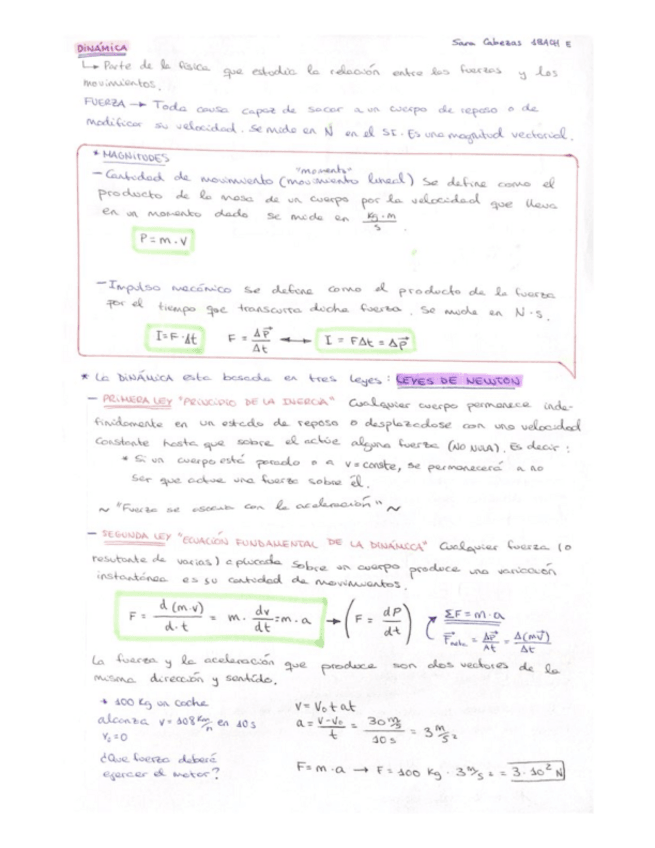 DINÁMICA
Sara Cabezas 1BACH E
↳ Parte de la Física que estudia la relación entre las fuerzas y los
movimientos.
FUERZA → Toda causa capaz de sacar a un cuerpo de reposo o de
modificar su velocidad. Se mide en N en el SI. Es una magnitud vectorial.
* MAGNITUDES
"momento"
- Cantidad de movimiento (movimiento lineal) Se define como el
producto de la masa de un cuerpo por la velocidad que lleva
en un momento dado se mide en kg·m/s.
P = m·v
- Impulso mecánico se define como el producto de la fuerza
por el tiempo que transcurra dicha fuerza. Se mide en N·s.
I = F·Δt F = Δp⃗/Δt ↔ I = FΔt = Δp⃗
* La DINÁMICA esta basada en tres leyes: LEYES DE NEWTON
- PRIMERA LEY "PRINCIPIO DE LA INERCIA" Cualquier cuerpo permanece inde-
finidamente en un estado de reposo o desplazadose con una velocidad
constante hasta que sobre el actúe alguna fuerza (NO NULA). Es decir:
* Si un cuerpo está parado o a v=conste, se permanecerá a no
ser que actue una fuerza sobre él.
~ "Fuerza se asocia con la aceleración" ~
- SEGUNDA LEY "ECUACIÓN FUNDAMENTAL DE LA DINÁMICA" Cualquier fuerza (o
resutante de varias) aplicada sobre un cuerpo produce una variación
instantánea es su cantidad de movimientos.
F = d(m·v)/d·t = m· dv/dt = m·a → (F = dP/dt) ΣF = m·a
F⃗neta = Δp⃗/Δt = Δ(mv⃗)/Δt
La fuerza y la aceleración que produce son dos vectores de la
misma dirección y sentido.
* 100 kg un coche
alcanza v = 108 km/h en 10 s
V₀ = 0
¿Que fuerza deberá
ejercer el motor?
v = V₀ + at
a = v-v₀/t = 30 m/s / 10 s = 3 m/s²
F = m·a → F = 100 kg · 3 m/s² = 3·10² N